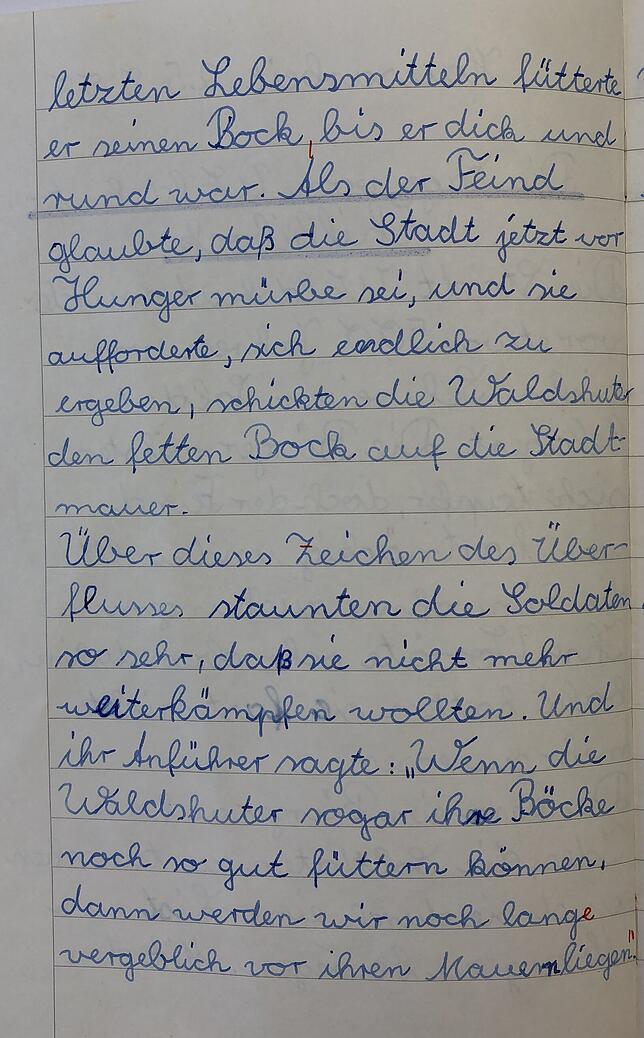 letzten Lebensmitteln fütterte
er seinen Bock, bis er dick und
rund war. Als der Feind
glaubte, daß die Stadt jetzt vor
Hunger mürbe sei, und sie
aufforderte, sich endlich zu
ergeben, schickten die Waldshuter
den fetten Bock auf die Stadt-
mauer.
Über dieses Zeichen des Über-
flusses staunten die Soldaten
so sehr, daß sie nicht mehr
weiterkämpfen wollten. Und
ihr Anführer sagte: „Wenn die
Waldshuter sogar ihre Böcke
noch so gut füttern können,
dann werden wir noch lange
vergeblich vor ihren Mauern liegen."